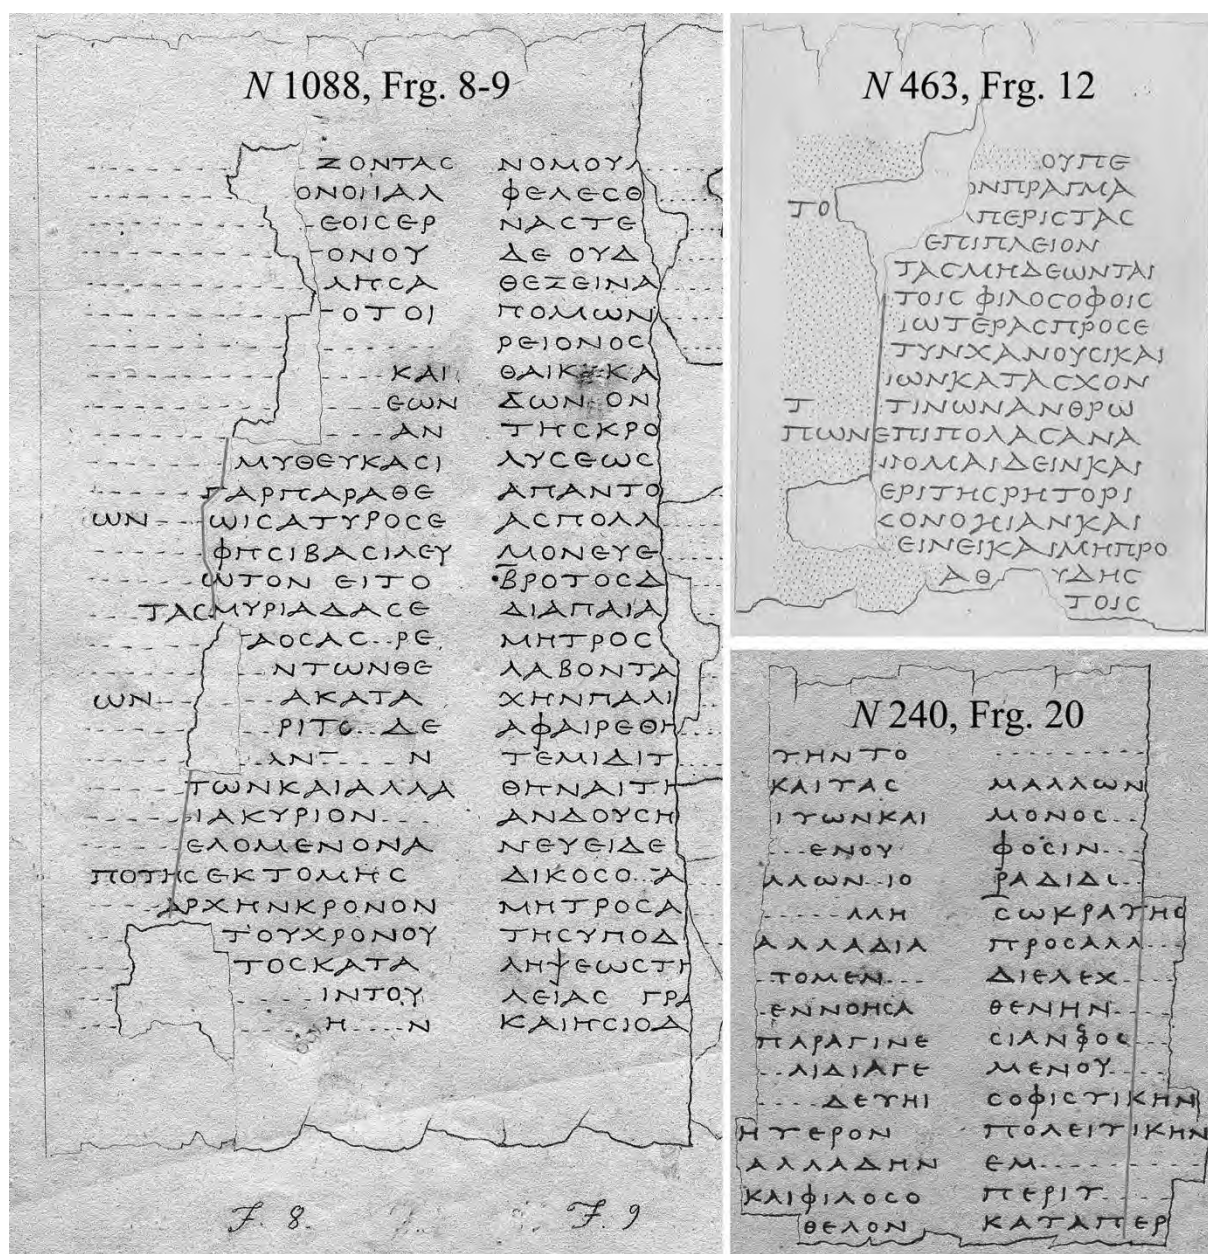 N 1088, Frg. 8-9
ΖΟΝΤΑϹ
ΕΟΙϹΕΡ
ΟΝΟΥ
ΛΗϹΑ
ΟΤΟΙ
ΚΑΙ
ΕΩΝ
ΑΝ
ΜΥΘΕΥΚΑϹΙ
ΓΑΡΠΑΡΑΘΕ
ΩΝ ΩΙϹΑΤΥΡΟϹΕ
ΦΗϹΙΒΑϹΙΛΕΥ
ΩΤΟΝ ΕΙΤΟ
ΤΑϹΜΥΡΙΑΔΑϹΕ
ΑΟϹΑϹ ΡΕ
ΝΤΩΝΘΕ
ΩΝ ΑΚΑΤΑ
ΡΙΤΟ ΔΕ
ΑΝ Ν
ΤΩΝΚΑΙΑΛΛΑ
ΙΑΚΥΡΙΟΝ
ΕΛΟΜΕΝΟΝΑ
ΠΟΤΗϹΕΚΤΟΜΗϹ
ΑΡΧΗΝΚΡΟΝΟΝ
ΤΟΥΧΡΟΝΟΥ
ΤΟϹΚΑΤΑ
ΙΝΤΟΥ
Η Ν
ΝΟΜΟΥΛ
ΦΕΛΕϹΘ
ΝΑϹΤΕ
ΔΕ ΟΥΔ
ΘΕΖΕΙΝΑ
ΠΟΜΩΝ
ΡΕΙΟΝΟϹ
ΔΩΝ ΟΝ
ΤΗϹΚΡΟ
ΛΥϹΕΩϹ
ΑΠΑΝΤΟ
ΑϹΠΟΛΛ
ΜΟΝΕΥΕ
ΒΡΟΤΟϹΔ
ΔΙΑΠΑΙΑ
ΜΗΤΡΟϹ
ΛΑΒΟΝΤΑ
ΧΗΝΠΑΛΙ
ΑΦΑΙΡΕΘΗ
ΤΕΜΙΔΙΤ
ΘΗΝΑΙΤΗ
ΑΝΔΟΥϹΗ
ΝΕΥΕΙΔΕ
ΔΙΚΟϹΟ Α
ΜΗΤΡΟϹΑ
ΤΗϹΥΠΟΔ
ΛΗΨΕΩϹΤΗ
ΛΕΙΑϹ ΓΡΑ
ΚΑΙΗϹΙΟΔ
F. 8.
F. 9
N 463, Frg. 12
ΟΥΠΕ
ΟΝΠΡΑΓΜΑ
ΤΟ ΠΕΡΙϹΤΑϹ
ΕΠΙΠΛΕΙΟΝ
ΤΑϹΜΗΔΕΩΝΤΑΙ
ΤΟΙϹ ΦΙΛΟϹΟΦΟΙϹ
ΙΩΤΕΡΑϹΠΡΟϹΕ
ΤΥΝΧΑΝΟΥϹΙΚΑΙ
ΙΩΝΚΑΤΑϹΧΟΝ
Τ ΤΙΝΩΝΑΝΘΡΩ
ΠΩΝΕΠΙΠΟΛΑϹΑΝΑ
ΝΟΜΑΙΔΕΙΝΚΑΙ
ΕΡΙΤΗϹΡΗΤΟΡΙ
ϹΟΝΟΗΙΑΝΚΑΙ
ΕΙΝΕΙΚΑΙΜΗΠΡΟ
ΑΘ ΥΔΗϹ
ΤΟΙϹ
N 240, Frg. 20
ΤΗΝΤΟ
ΚΑΙΤΑϹ
ΙΤΩΝΚΑΙ
ΕΝΟΥ
ΛΛΩΝ ΙΟ
ΛΛΗ
ΑΛΛΑΔΙΑ
ΤΟΜΕΝ
ΕΝΝΟΗϹΑ
ΠΑΡΑΓΙΝΕ
ΛΙΔΙΑΓΕ
ΔΕΤΗΙ
ΗΤΕΡΟΝ
ΑΛΛΑΔΗΝ
ΚΑΙΦΙΛΟϹΟ
ΘΕΛΟΝ
ΜΑΛΛΩΝ
ΜΟΝΟϹ
ΦΟϹΙΝ
ΡΑΔΙΔΙ
ϹΩΚΡΑΤΗϹ
ΠΡΟϹΑΛΛ
ΔΙΕΛΕΧ
ΘΕΝΗΝ
ΜΕΝΟΥ
ϹΟΦΙϹΤΙΚΗΝ
ΠΟΛΕΙΤΙΚΗΝ
ΕΜ
ΠΕΡΙΤ
ΚΑΤΑΠΕΡ